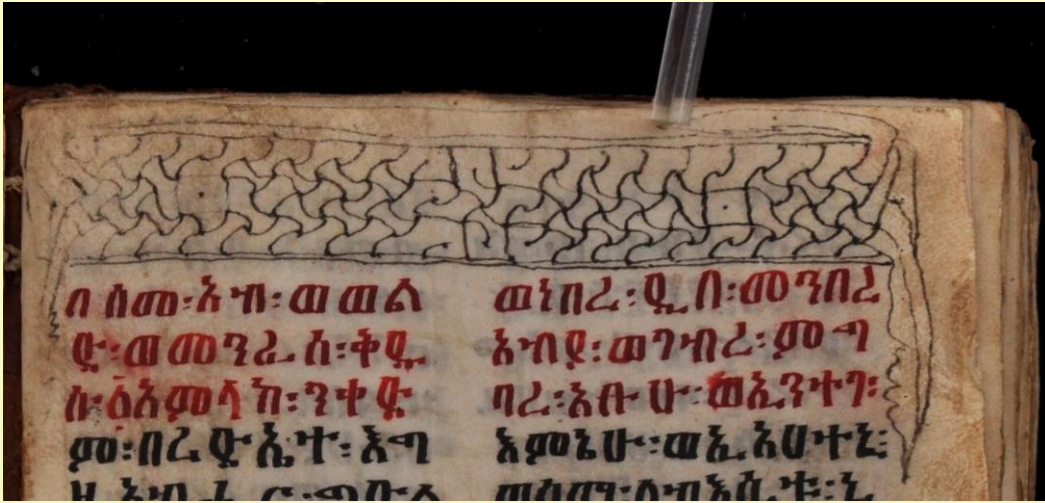 በስመ፡አብ፡ወወል
ድ፡ወመንፈስ፡ቅዱ
ስ፡፩አምላክ፡ንቀድ
ም፡በረድኤተ፡እግ
ወነበረ፡ዲበ፡መንበረ
ወገብረ፡ምግ
ባረ፡አቡሁ፡ወኢንተገ፡
እምኔሁ፡ወኢአሀተኒ፡